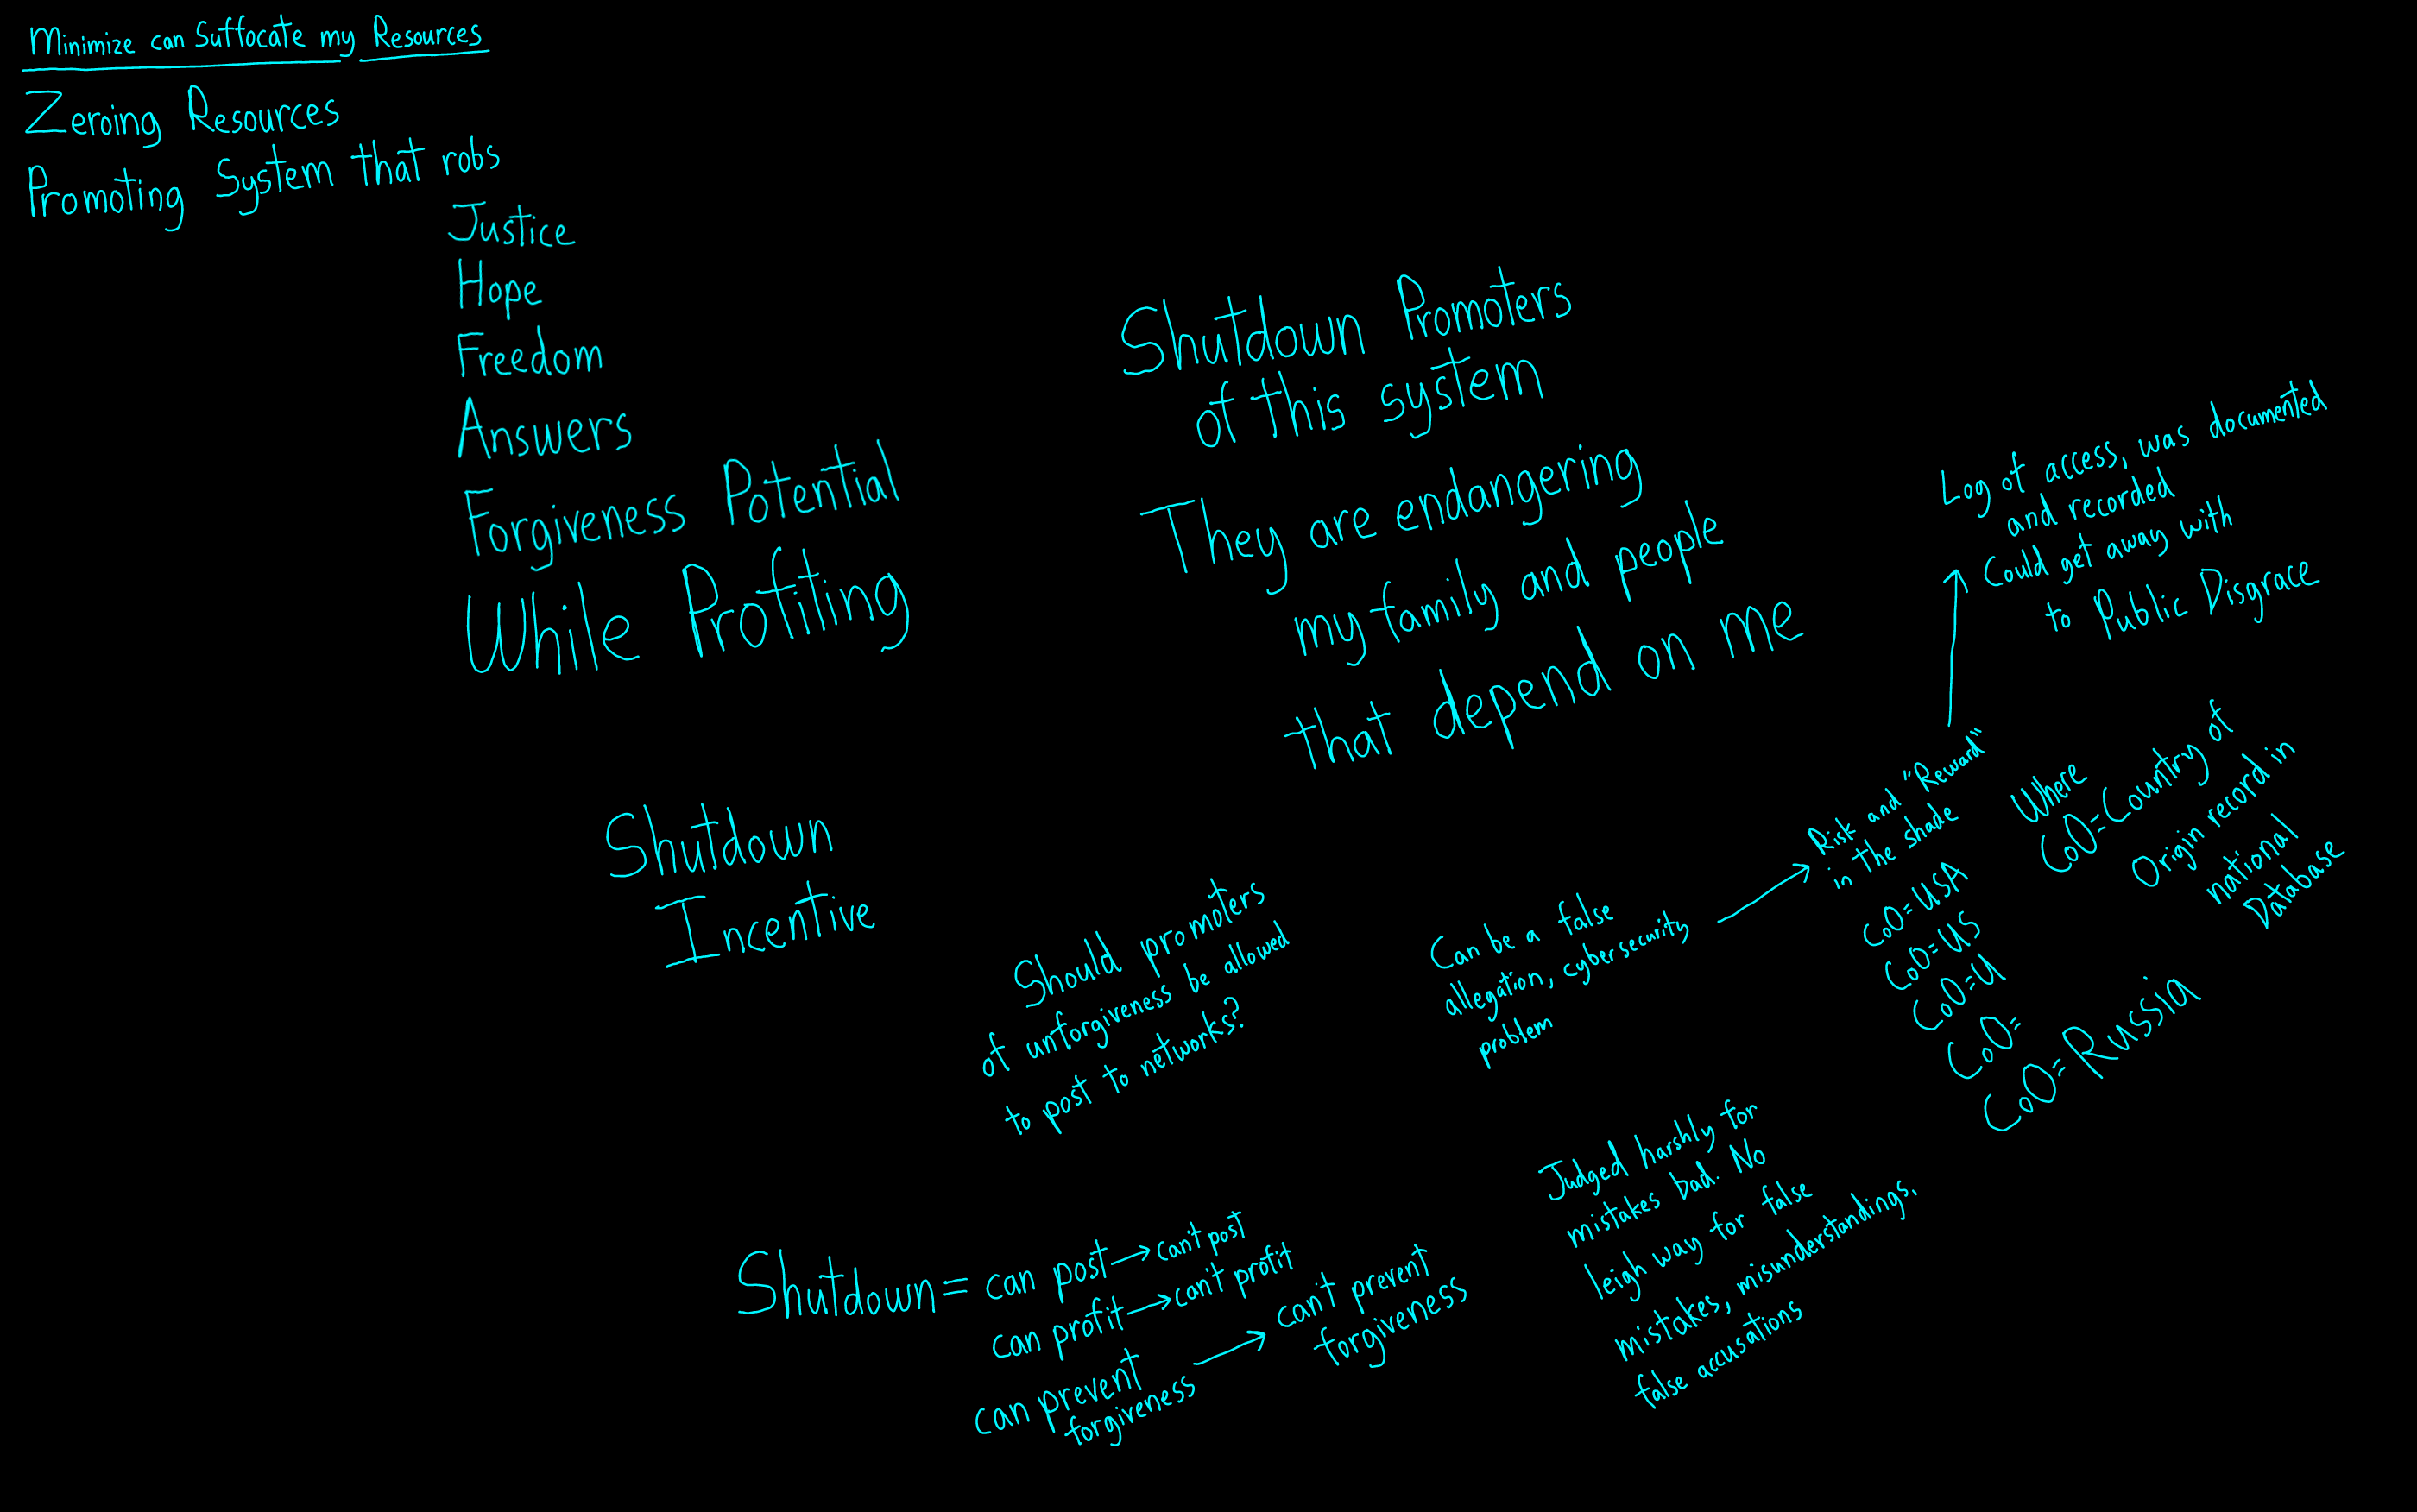 Minimize can Suffocate my Resources
Zeroing Resources
Promoting System that robs
Justice
Hope
Freedom
Answers
Forgiveness Potential
While Profiting
Shutdown Promoters
of this system
They are endangering
my family and people
that depend on me
Log of access, was documented
and recorded
Could get away with
to Public Disgrace
Shutdown
Incentive
Should promoters
of unforgiveness be allowed
to post to networks?
Can be a false
allegation, cybersecurity
problem
Risk and "Reward"
in the shade
CoO=USA
CoO=US
CoO=U
CoO=
CoO=Russia
Where
CoO=Country of
Origin record in
national
Database
Shutdown= can post→can't post
can profit→can't profit
can prevent
forgiveness
→
can't prevent
forgiveness
Judged harshly for
mistakes bad. No
leigh way for false
mistakes, misunderstandings,
false accusations